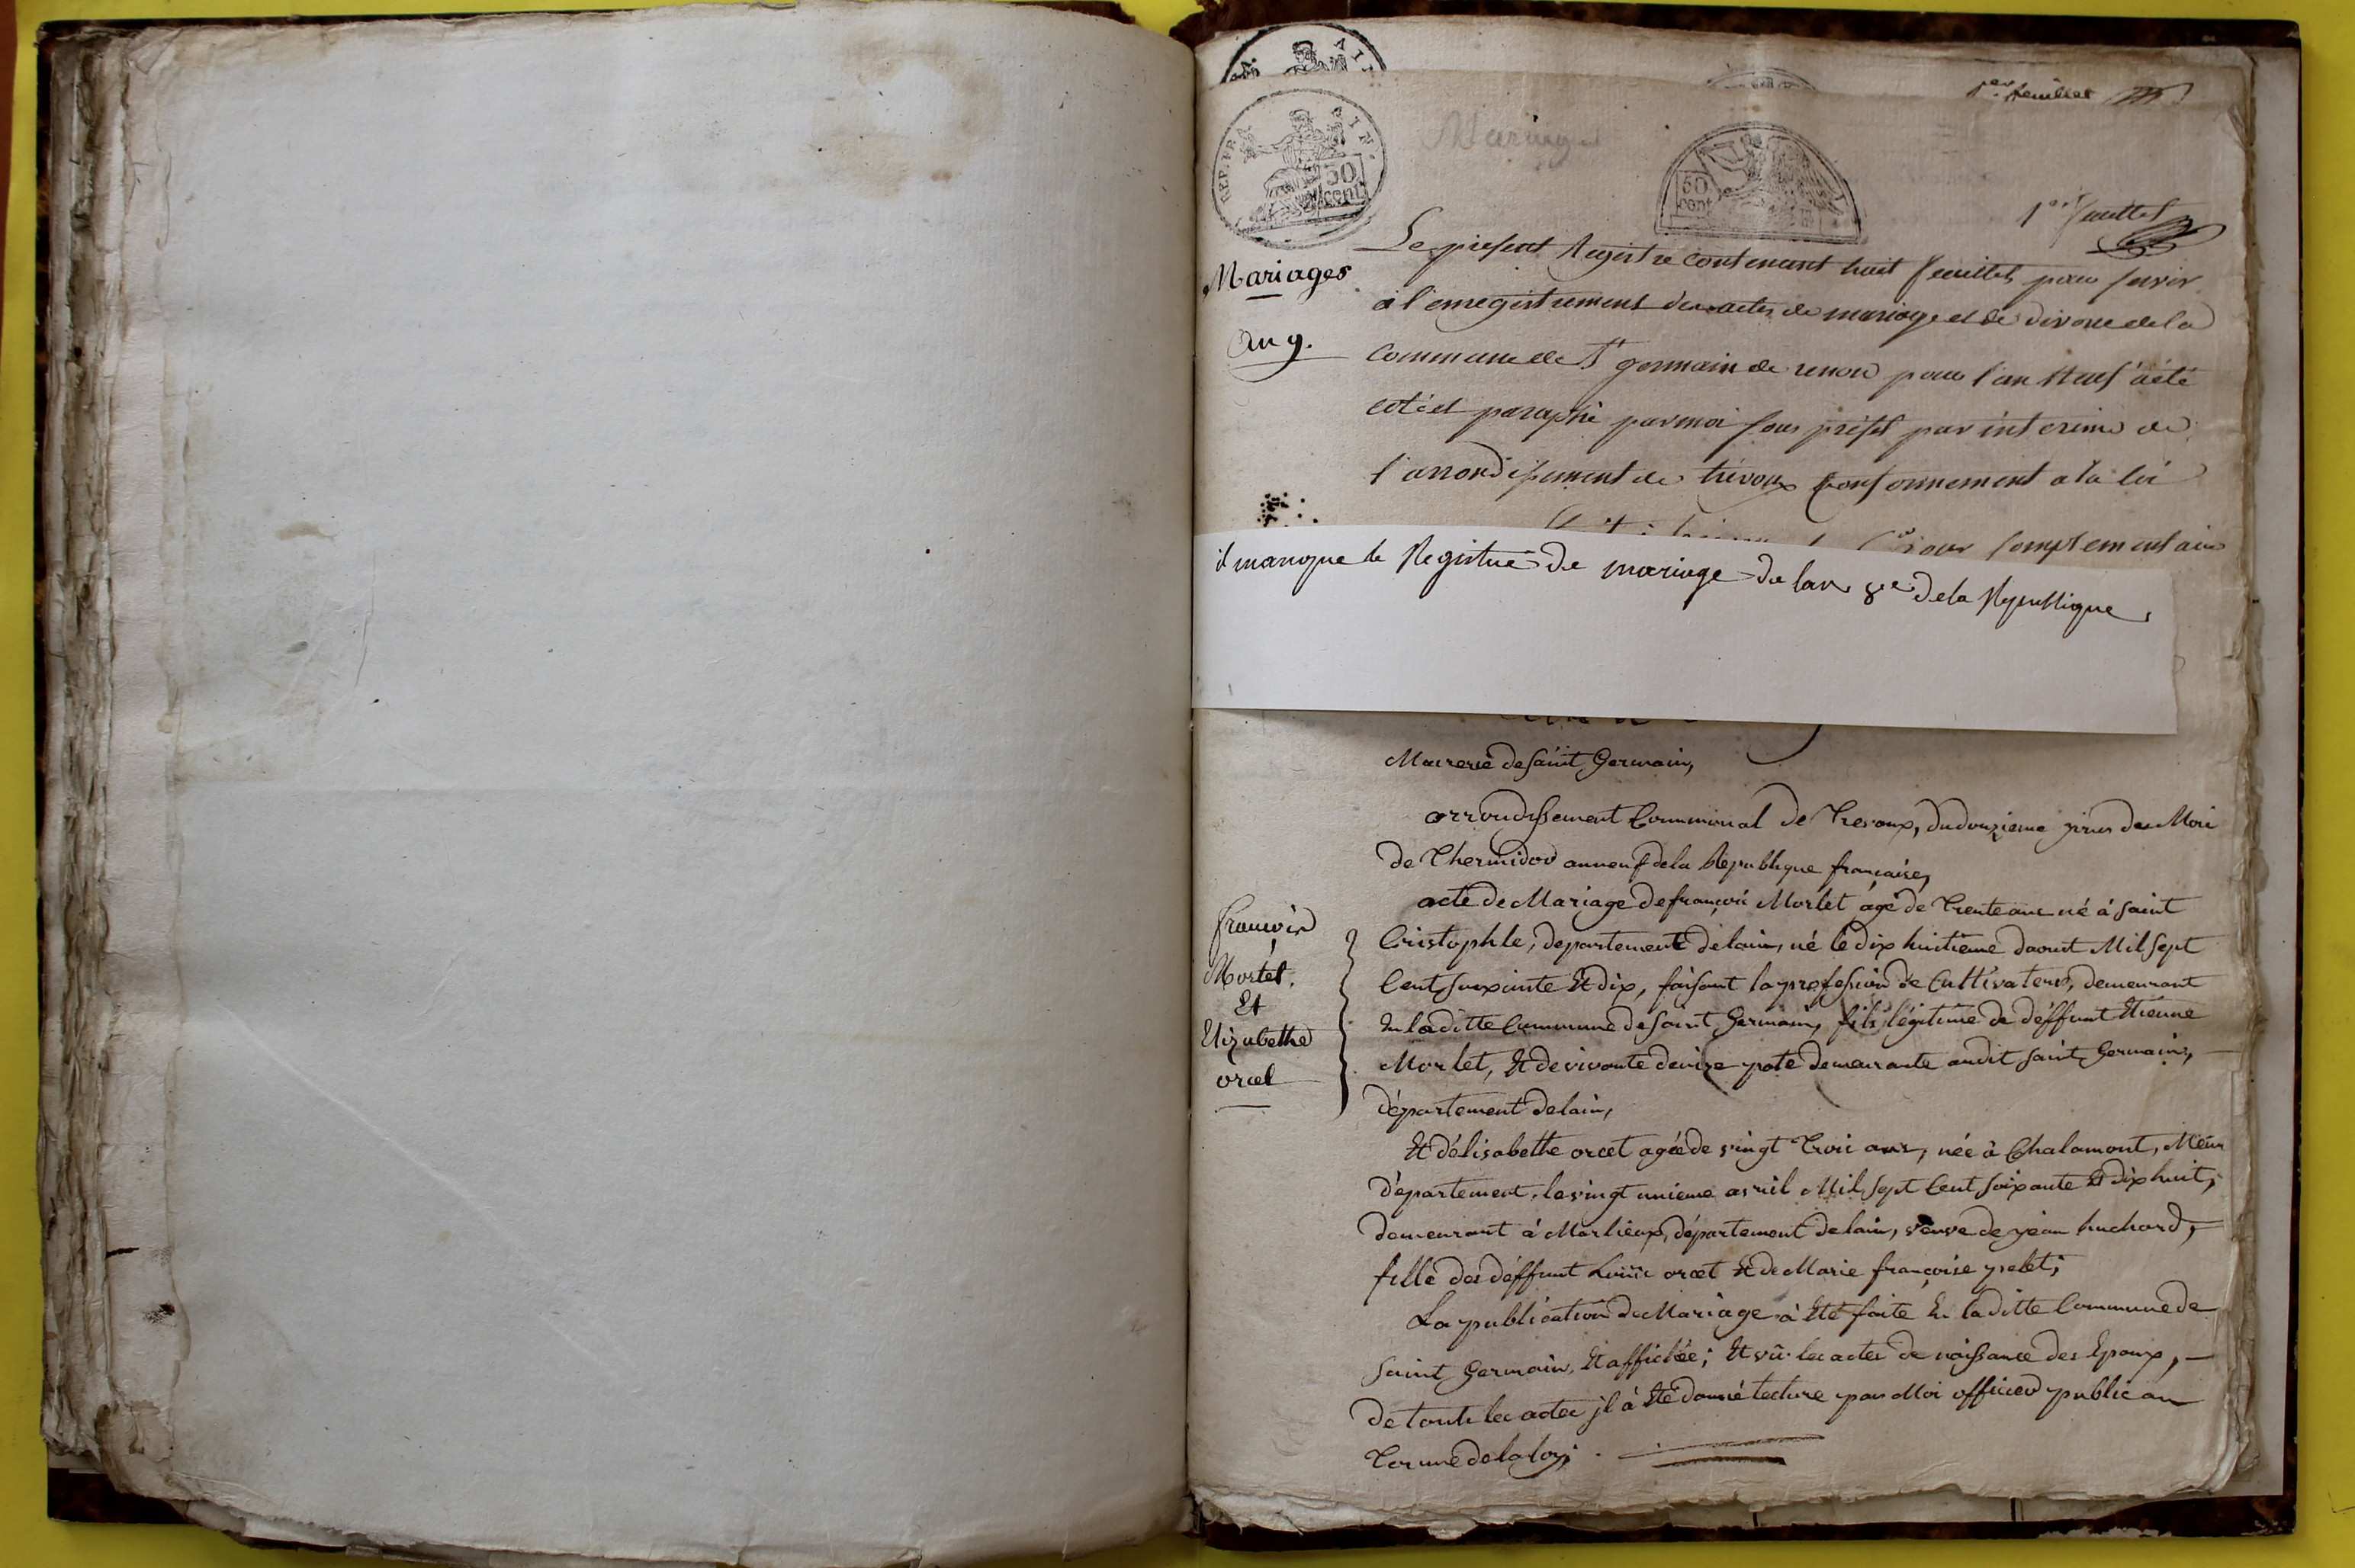 1er feuillet
REP. FR.
AIN.
50
cent
Mariages
50
cent
1er feuillet
Mariages
an 9.
Le présent Registre contenant huit feuillets pour servir
à l'enregistrement des actes de mariage et de divorce de la
Commune de St germain de renon pour l'an Neuf a été
coté et paraphé par moi sous préfet par interime de
l'arrondissement de trévoux conformement a la loi
jour complementaire
il manque le Registre de mariage de lan 8e de la Republique
Mairerie de saint Germain,
arrondissement Communal de Trevoux, du douzieme jour du Moi
de Thermidor an neuf de la République française,
acte de Mariage de françois Morlet agé de Trente ans né à saint
Cristophle, departement de lain, né le dix huitieme daout Mil sept
Cent soixante Et dix, faisant la profession de Cultivateur, demeurant
En la ditte Commune de saint Germain, fils légitime de déffunt Etienne
Morlet, Et de vivante denise pote demeurante audit saint Germain,
département de lain,
françois
Mortel.
Et
Elizabethe
orcel
Et délisabethe orcet agée de vingt Trois ans, née à Chalamont, Même
département, le vingt unieme avril Mil sept Cent soixante Et dix huit,
demeurant à Marlieux, département de lain, veuve de jean huchard,
fille des déffunt Louis orcet Et de Marie françoise
La publication de Mariage à Eté faite En la ditte Commune de
saint Germain, Et affichée; Et vû les actes de naissance des Epoux,
de touts les actes jl à Eté donné lecture par Moi officier public au
Terme de la loy;